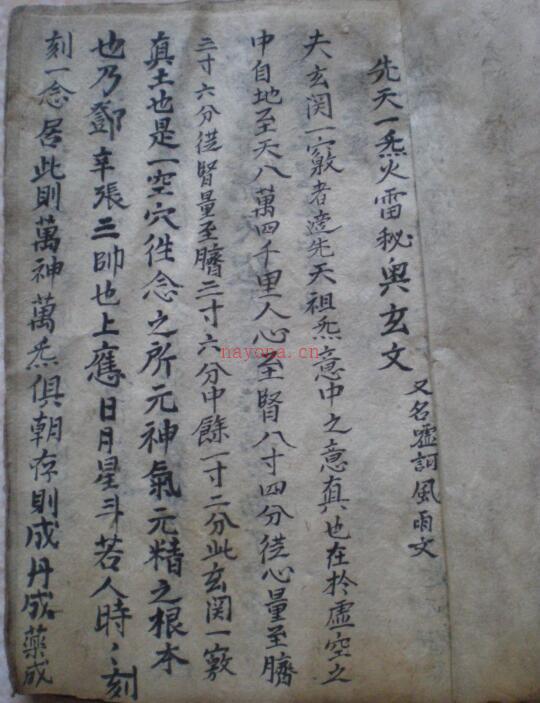 先天一炁火雷秘奥玄文
又名嘘訶風雨文
夫玄関一竅者遶先天祖炁意中之意真也在扵虚空之
中自地至天八萬四千里人心至腎八寸四分從心量至臍
三寸六分從腎量至臍三寸六分中餘一寸二分此玄関一竅
真土也是一空穴徃念之所元神氣元精之根本
也乃鄧辛張三帥也上應日月星斗若人時〻刻
刻一念居此則萬神萬炁俱朝存則成丹成藥成
nayona.cn